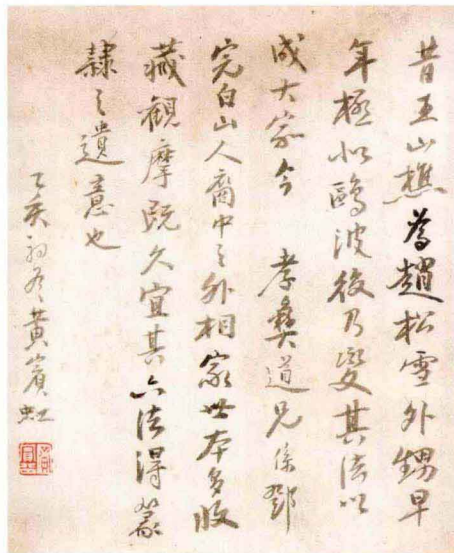 昔王山樵為趙松雪外甥早
年極似鷗波後乃變其法以
成大家今 孝彝道兄係鄧
完白山人裔中之外相家世本多收
藏觀摩既久宜其六法得篆
隸之遺意也
乙亥初冬黃賓虹